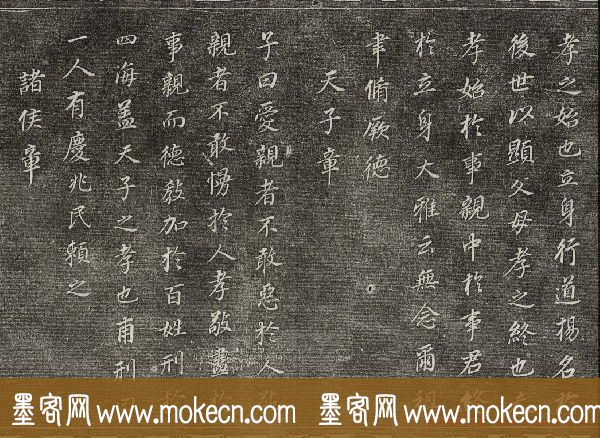 孝之始也立身行道揚名於
後世以顯父母孝之終也夫
孝始於事親中於事君終
於立身大雅云無念爾祖
聿脩厥德
天子章
子曰愛親者不敢惡於人敬
親者不敢慢於人愛敬盡於
事親而德教加於百姓刑於
四海蓋天子之孝也甫刑曰
一人有慶兆民賴之
諸侯章
墨客网 www.mokecn.com 墨客网 www.mokecn.com